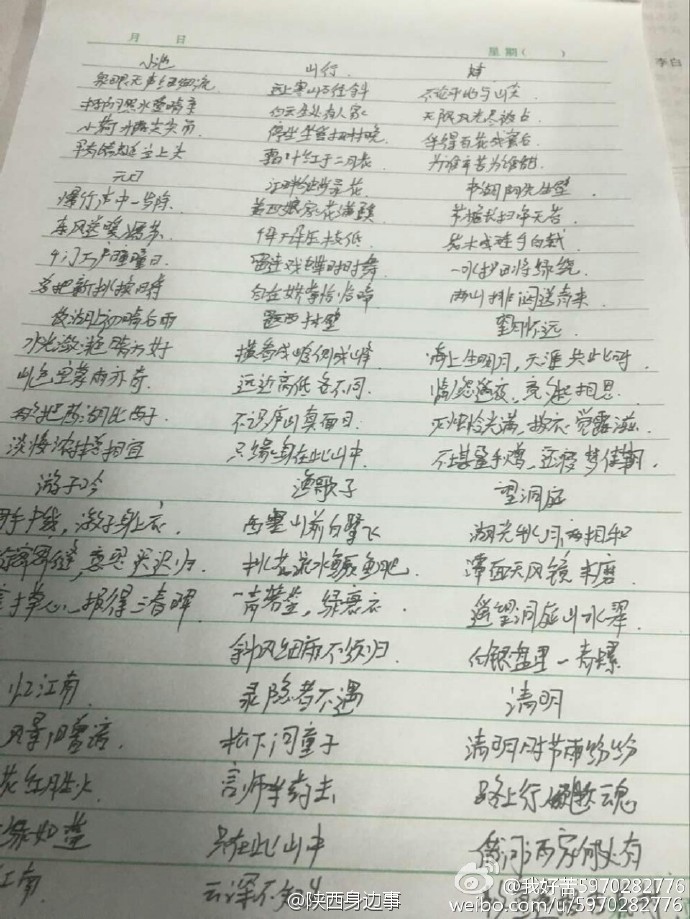 月 日
星期( )
李白
小池
泉眼无声惜细流
树阴照水爱晴柔
小荷才露尖尖角
早有蜻蜓立上头
元日
爆竹声中一岁除.
春风送暖入屠苏.
千门万户曈曈日.
总把新桃换旧符
饮湖上初晴后雨
水光潋滟晴方好
山色空蒙雨亦奇.
欲把西湖比西子
淡妆浓抹总相宜
游子吟
手中线, 游子身上衣.
密密缝, 意恐迟迟归.
寸草心, 报得三春晖
忆江南.
风景旧曾谙.
花红胜火
绿如蓝
江南.
山行.
远上寒山石径斜
白云生处有人家
停车坐爱枫林晚.
霜叶红于二月花.
江畔独步寻花.
黄四娘家花满蹊
千朵万朵压枝低
留连戏蝶时时舞
自在娇莺恰恰啼
题西林壁
横看成岭侧成峰
远近高低各不同.
不识庐山真面目.
只缘身在此山中
渔歌子
西塞山前白鹭飞
桃花流水鳜鱼肥.
青箬笠, 绿蓑衣.
斜风细雨不须归.
寻隐者不遇
松下问童子
言师采药去
只在此山中
云深不知处
蜂
不论平地与山尖
无限风光尽被占
采得百花成蜜后
为谁辛苦为谁甜
书湖阴先生壁
茅檐长扫净无苔
花木成畦手自栽
一水护田将绿绕
两山排闼送青来
望月怀远.
海上生明月, 天涯共此时
情人怨遥夜, 竟夕起相思.
灭烛怜光满, 披衣觉露滋.
不堪盈手赠, 还寝梦佳期.
望洞庭
湖光秋月两相和
潭面无风镜未磨
遥望洞庭山水翠
白银盘里一青螺
清明
清明时节雨纷纷
路上行人欲断魂
借问酒家何处有
@陕西身边事
@我好苦5970282776
weibo.com/u/5970282776